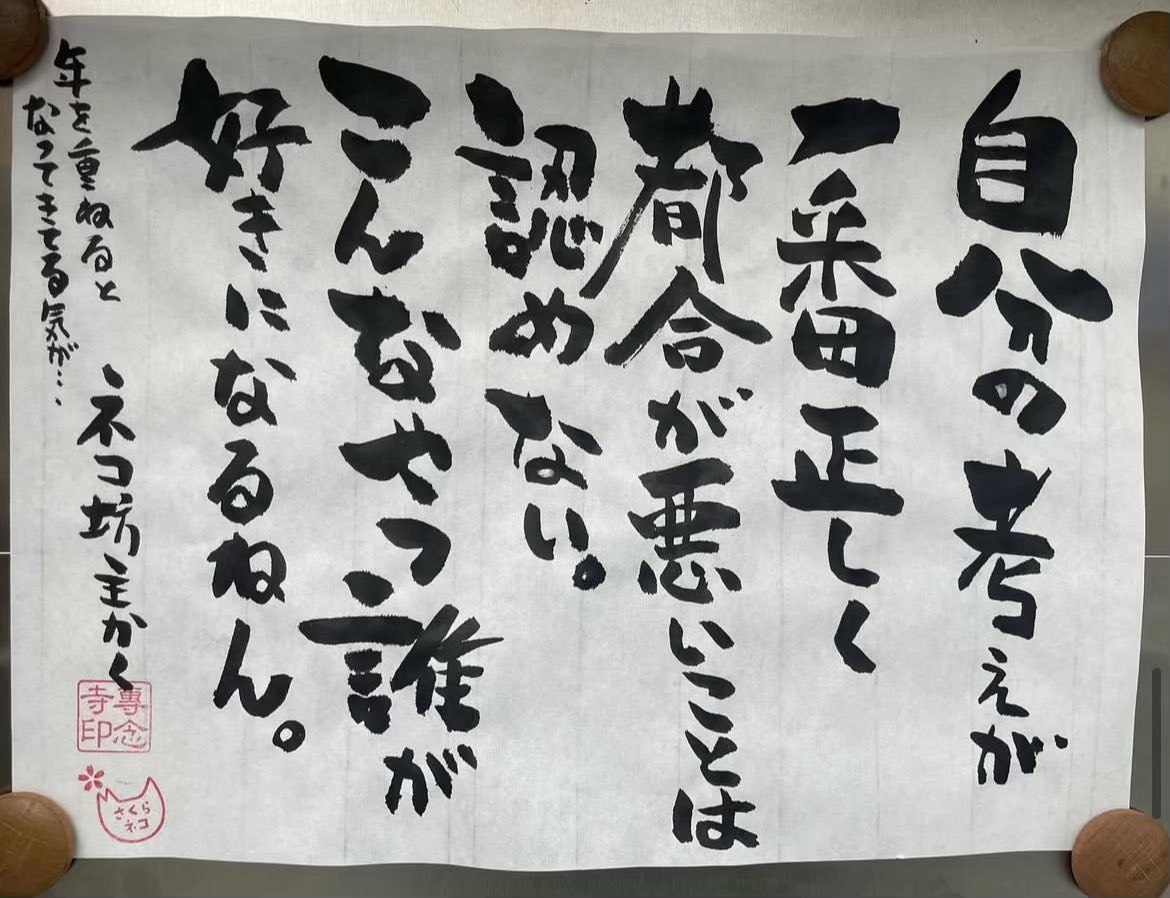 自分の考えが
一番正しく
都合が悪いことは
認めない。
こんなやつ誰が
好きになるねん。
年を重ねると
なってきてる気が…
ネコ坊主かく
專念
寺印
さくら
ネコ